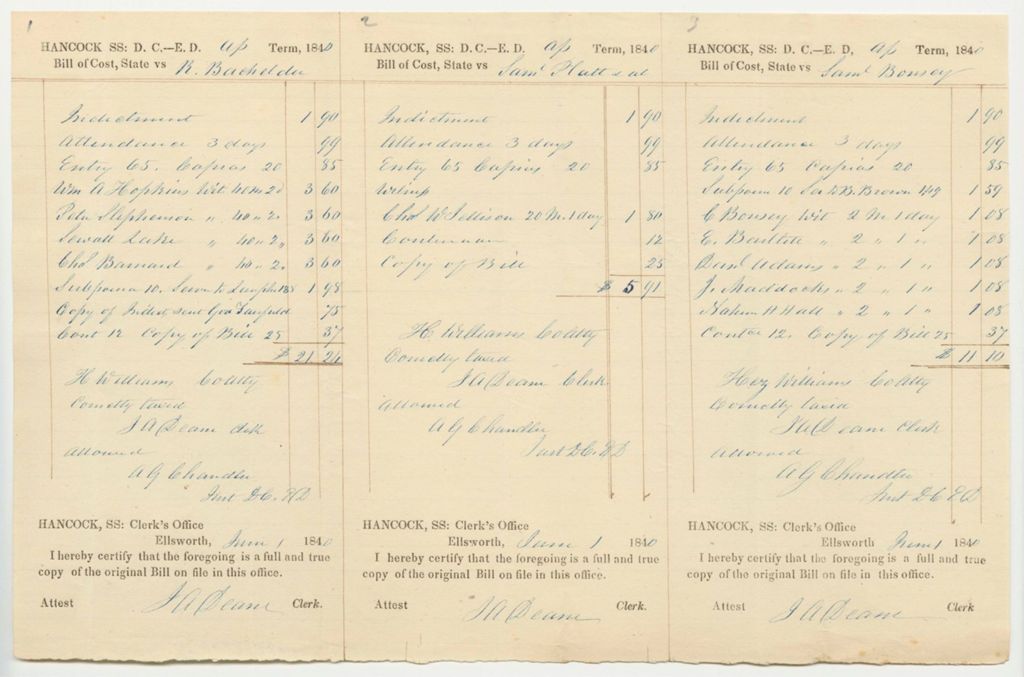 1
HANCOCK SS: D. C.—E. D. Ap Term, 1840
Bill of Cost, State vs R. Bachelder
Indictment 1 90
Attendance 3 days 99
Entry 65. Capias 20 85
Wm A Hopkins Wit 40 m 2d 3 60
Peter Stephenson " 40 " 2 " 3 60
Sewall Lake " 40 " 2 " 3 60
Chs Barnard " 40 " 2 " 3 60
Subpoena 10. 1 98
Copy of Indict sent Gov Fairfield 75
Cont 12 Copy of Bill 25 37
$ 21 24
H Williams Co Atty
Correctly taxed
J A Deane Clk
Allowed
A G Chandler
Just D. C. E D
HANCOCK, SS: Clerk's Office
Ellsworth, June 1 1840
I hereby certify that the foregoing is a full and true
copy of the original Bill on file in this office.
Attest J A Deane Clerk.
2
HANCOCK, SS: D. C.—E. D. Ap Term, 1840
Bill of Cost, State vs Saml Flutt & al
Indictment 1 90
Attendance 3 days 99
Entry 65 Capias 20 85
Witness
Chs W Jellison 20 M. 1 day 1 80
Continuance 12
Copy of Bill 25
$ 5 91
H. Williams Co Atty
Correctly taxed
J A Deane Clerk
Allowed
A G Chandler
Just D.C. E D
HANCOCK, SS: Clerk's Office
Ellsworth, June 1 1840
I hereby certify that the foregoing is a full and true
copy of the original Bill on file in this office.
Attest J A Deane Clerk.
3
HANCOCK, SS: D. C.—E. D, Ap Term, 1840
Bill of Cost, State vs Saml Bonsey
Indictment 1 90
Attendance 3 days 99
Entry 65 Capias 20 85
Subpoena 10 B. Brown 149 1 59
C Bonsey Wit 2 M 1 day 1 08
E. " 2 " 1 " 1 08
Danl Adams " 2 " 1 " 1 08
J. Maddocks " 2 " 1 " 1 08
Nahum H Hall " 2 " 1 " 1 08
Contce 12. Copy of Bill 25 37
$ 11 10
Hez Williams Co Atty
Correctly taxed
J A Deane Clerk
Allowed
A G Chandler
Just D C E D
HANCOCK, SS: Clerk's Office
Ellsworth June 1 1840
I hereby certify that the foregoing is a full and true
copy of the original Bill on file in this office.
Attest J A Deane Clerk